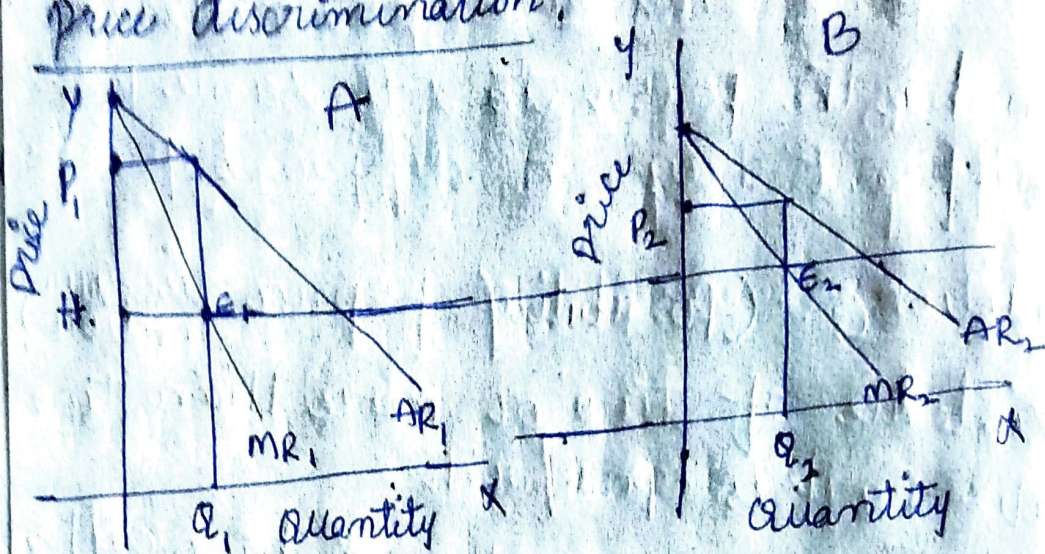 price discrimination.
Y
A
P1
Price
H.
E1
MR1
AR1
Q1
Quantity
X
Y
B
Price
P2
E2
AR2
MR2
X
Q2
Quantity